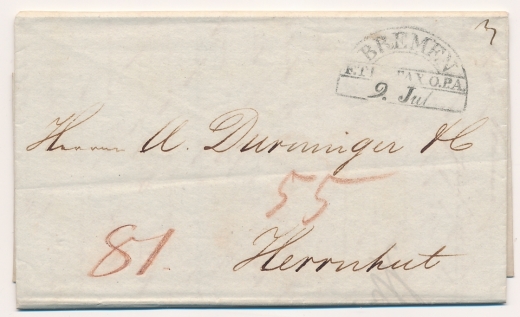 3
BREMEN
F.TH.&TAX.O.P.A.
9. Jul
Herrn A. Dürninger & C
55
81.
Herrnhut